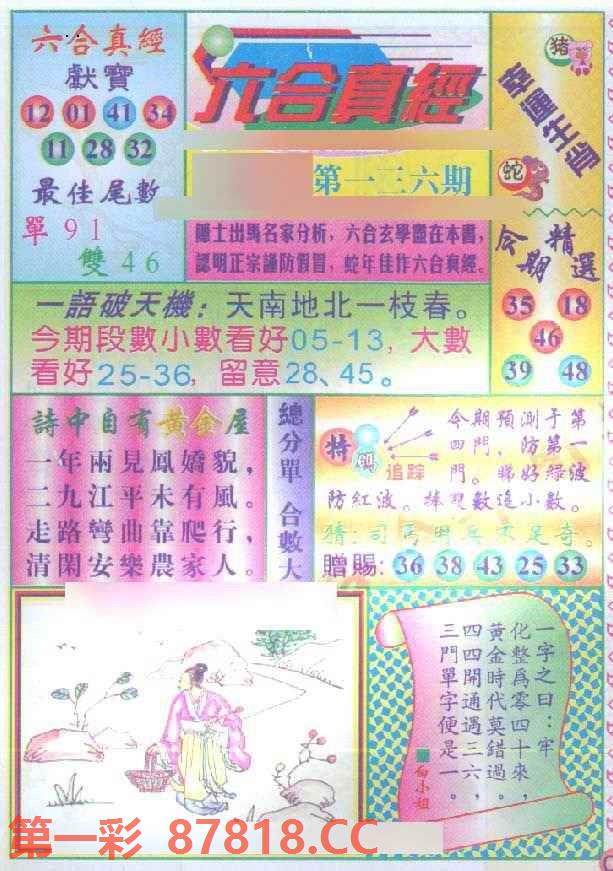 六合真經
獻寶
12 01 41 34
11 28 32
最佳尾數
單 91
雙 46
六合真經
第一三六期
隱士出馬名家分析，六合玄學盡在本書，
認明正宗謹防假冒，蛇年佳作六合真經。
豬
蛇
今期
精選
35 18
46
39 48
一語破天機：天南地北一枝春。
今期段數小數看好05-13，大數
看好25-36，留意28、45。
詩中自有黃金屋
一年兩見鳳嬌貌，
二九江平未有風。
走路彎曲靠爬行，
清閑安樂農家人。
總分單 合數大
特碼
追踪
今期預測于第
四門，防第一
門。睇好綠波
防紅波。捧双數追小數。
猜：司馬明兵不足奇。
贈賜：36 38 43 25 33
一字之曰：牢
化整爲零四十來，
黃金時代莫錯過。
四四開通遇三六，
三門單字便是一。
白小姐
第一彩 87818.CC